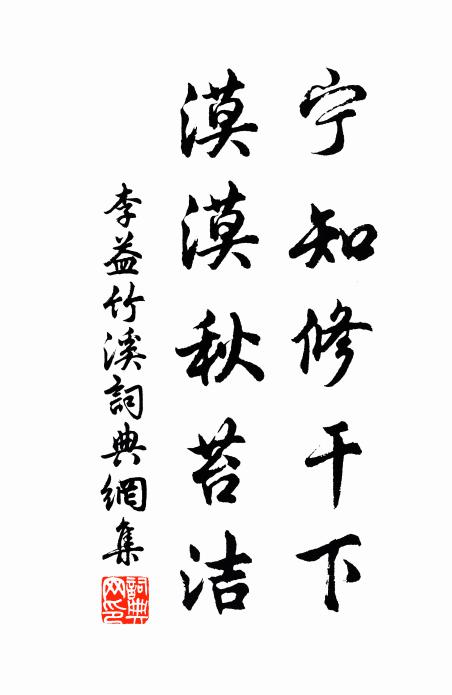 宁知修干下
漠漠秋苔洁
李益竹溪詞典網集
詞典网印